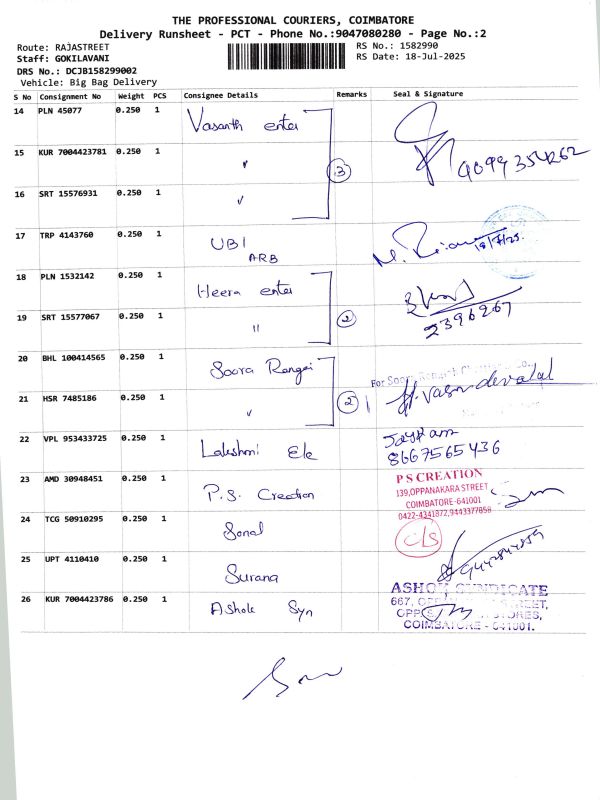 THE PROFESSIONAL COURIERS, COIMBATORE
Delivery Runsheet - PCT - Phone No.:9047080280 - Page No.:2
Route: RAJASTREET
RS No.: 1582990
Staff: GOKILAVANI
RS Date: 18-Jul-2025
DRS No.: DCJB158299002
Vehicle: Big Bag Delivery
S No Consignment No Weight PCS Consignee Details Remarks Seal & Signature
14 PLN 45077 0.250 1 Vasanth enter
15 KUR 7004423781 0.250 1 " 3
16 SRT 15576931 0.250 1 "
17 TRP 4143760 0.250 1 UBI ARB 18/7/25
18 PLN 1532142 0.250 1 Heera enter
19 SRT 15577067 0.250 1 " 2 2396267
20 BHL 100414565 0.250 1 Soora Rangai For Soora
21 HSR 7485186 0.250 1 " 2 H. Vasudevalal
22 VPL 953433725 0.250 1 Lakshmi Ele Jayram 8667565436
23 AMD 30948451 0.250 1 P.S. Creation
P S CREATION
139,OPPANAKARA STREET
COIMBATORE-641001
0422-4341872,9443377858
24 TCG 50910295 0.250 1 Sonal C/S
25 UPT 4110410 0.250 1 Surana
26 KUR 7004423786 0.250 1 Ashok Syn
ASHOK SYNDICATE
667, STREET,
OPP. STORES,
COIMBATORE - 641001.